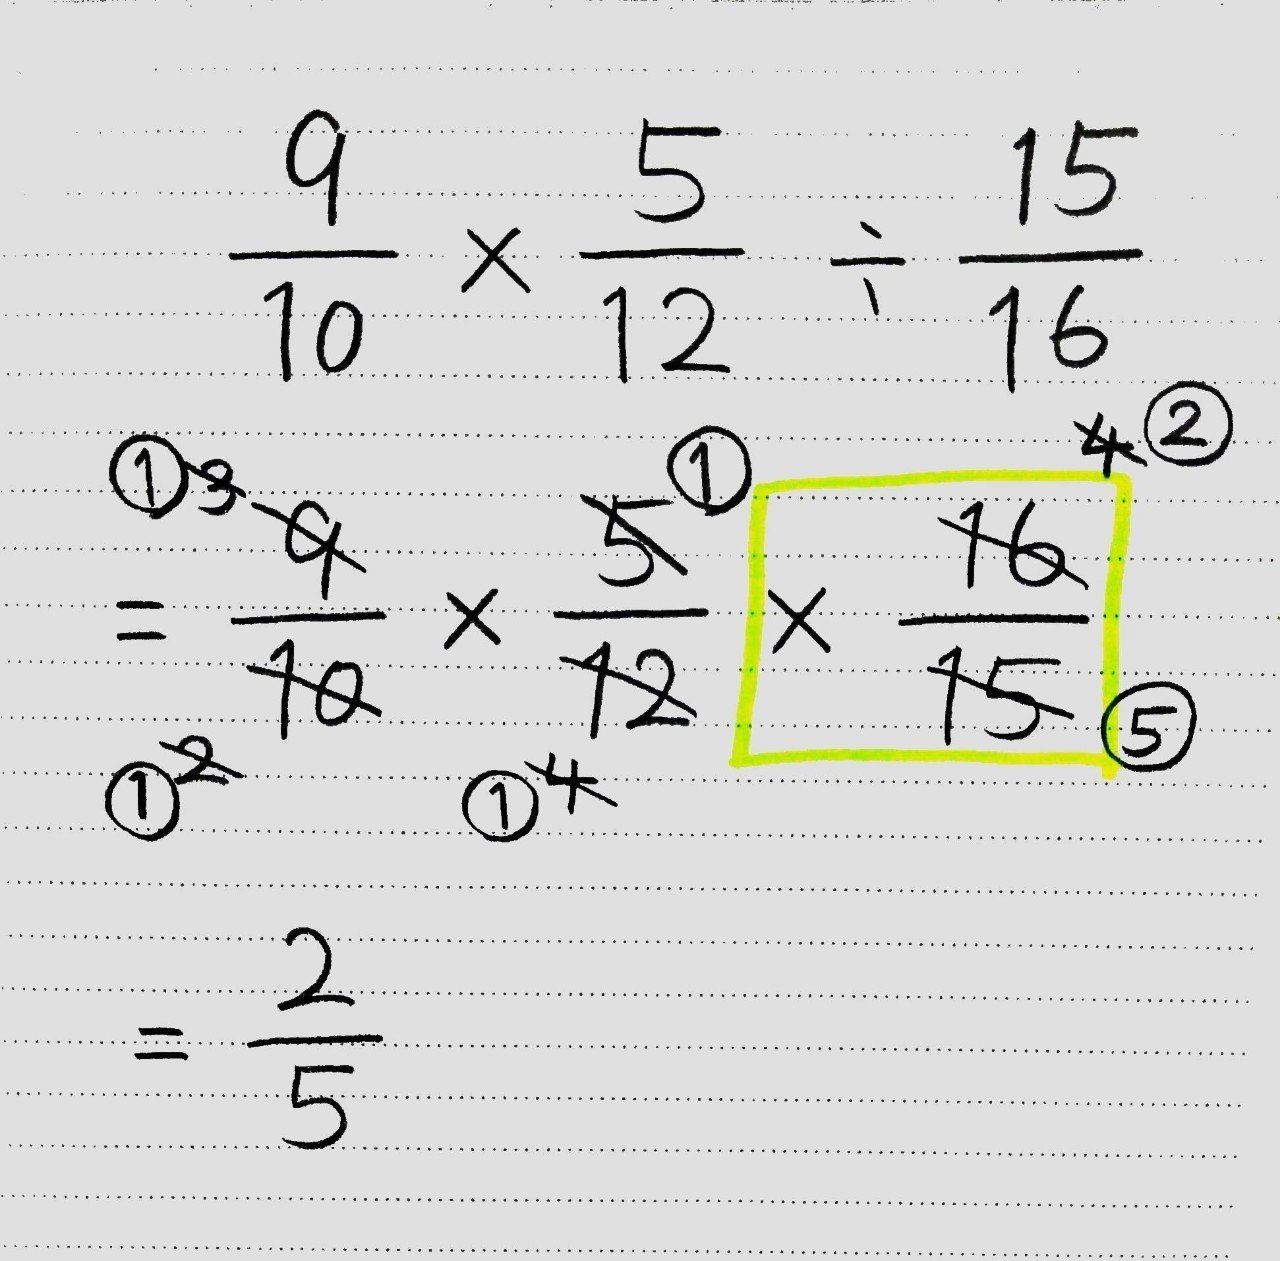 9/10 × 5/12 ÷ 15/16
① 3 ① 4 ②
= 9/10 × 5/12 × 16/15
① 2 ① 4 ⑤
= 2/5